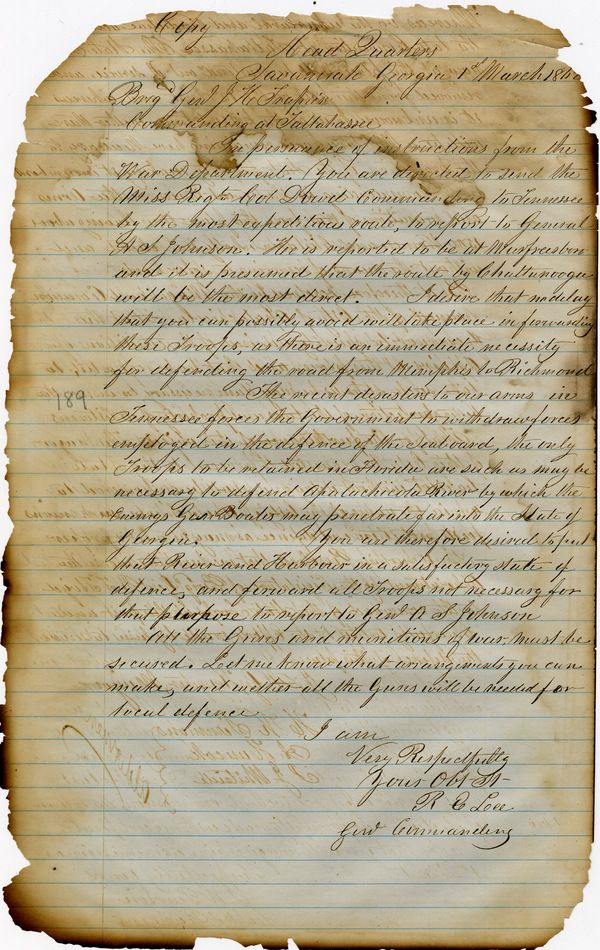 Copy
Head Quarters
Savannah Georgia 1st March 186
Brigd Genl J H Trapier
Commanding at Tallahassee
In persuance of instructions from the
War Department, You are directed to send the
Miss Regt Col Dowd Commanding to Tennessee
by the most expeditious route, to report to General
A S Johnson. He is reported to be at Murfreesboro
and it is presumed that the route by Chattanooga
will be the most direct. I desire that no delay
that you can possibly avoid will take place in forwarding
these Troops, as there is an immediate necessity
for defending the road from Memphis to Richmond
189
The recent disasters to our arms in
Tennessee forces the Government to withdraw forces
employed in the defence of the Seaboard, the only
Troops to be retained in Florida are such as may be
necessary to defend Apalachicola River by which the
Enemys Gun Boats may penetrate far into the State of
Georgia. You are therefore desired to put
that River and Harbour in a satisfactory state of
defence, and forward all Troops not necessary for
that purpose to report to Genl A S Johnson
All the Guns and munitions of war, must be
secured. Let me know what arrangements you can
make, and wether all the Guns will be needed for
local defence
I am
Very Respectfully
Your Obt St
R E Lee
Genl Commanding